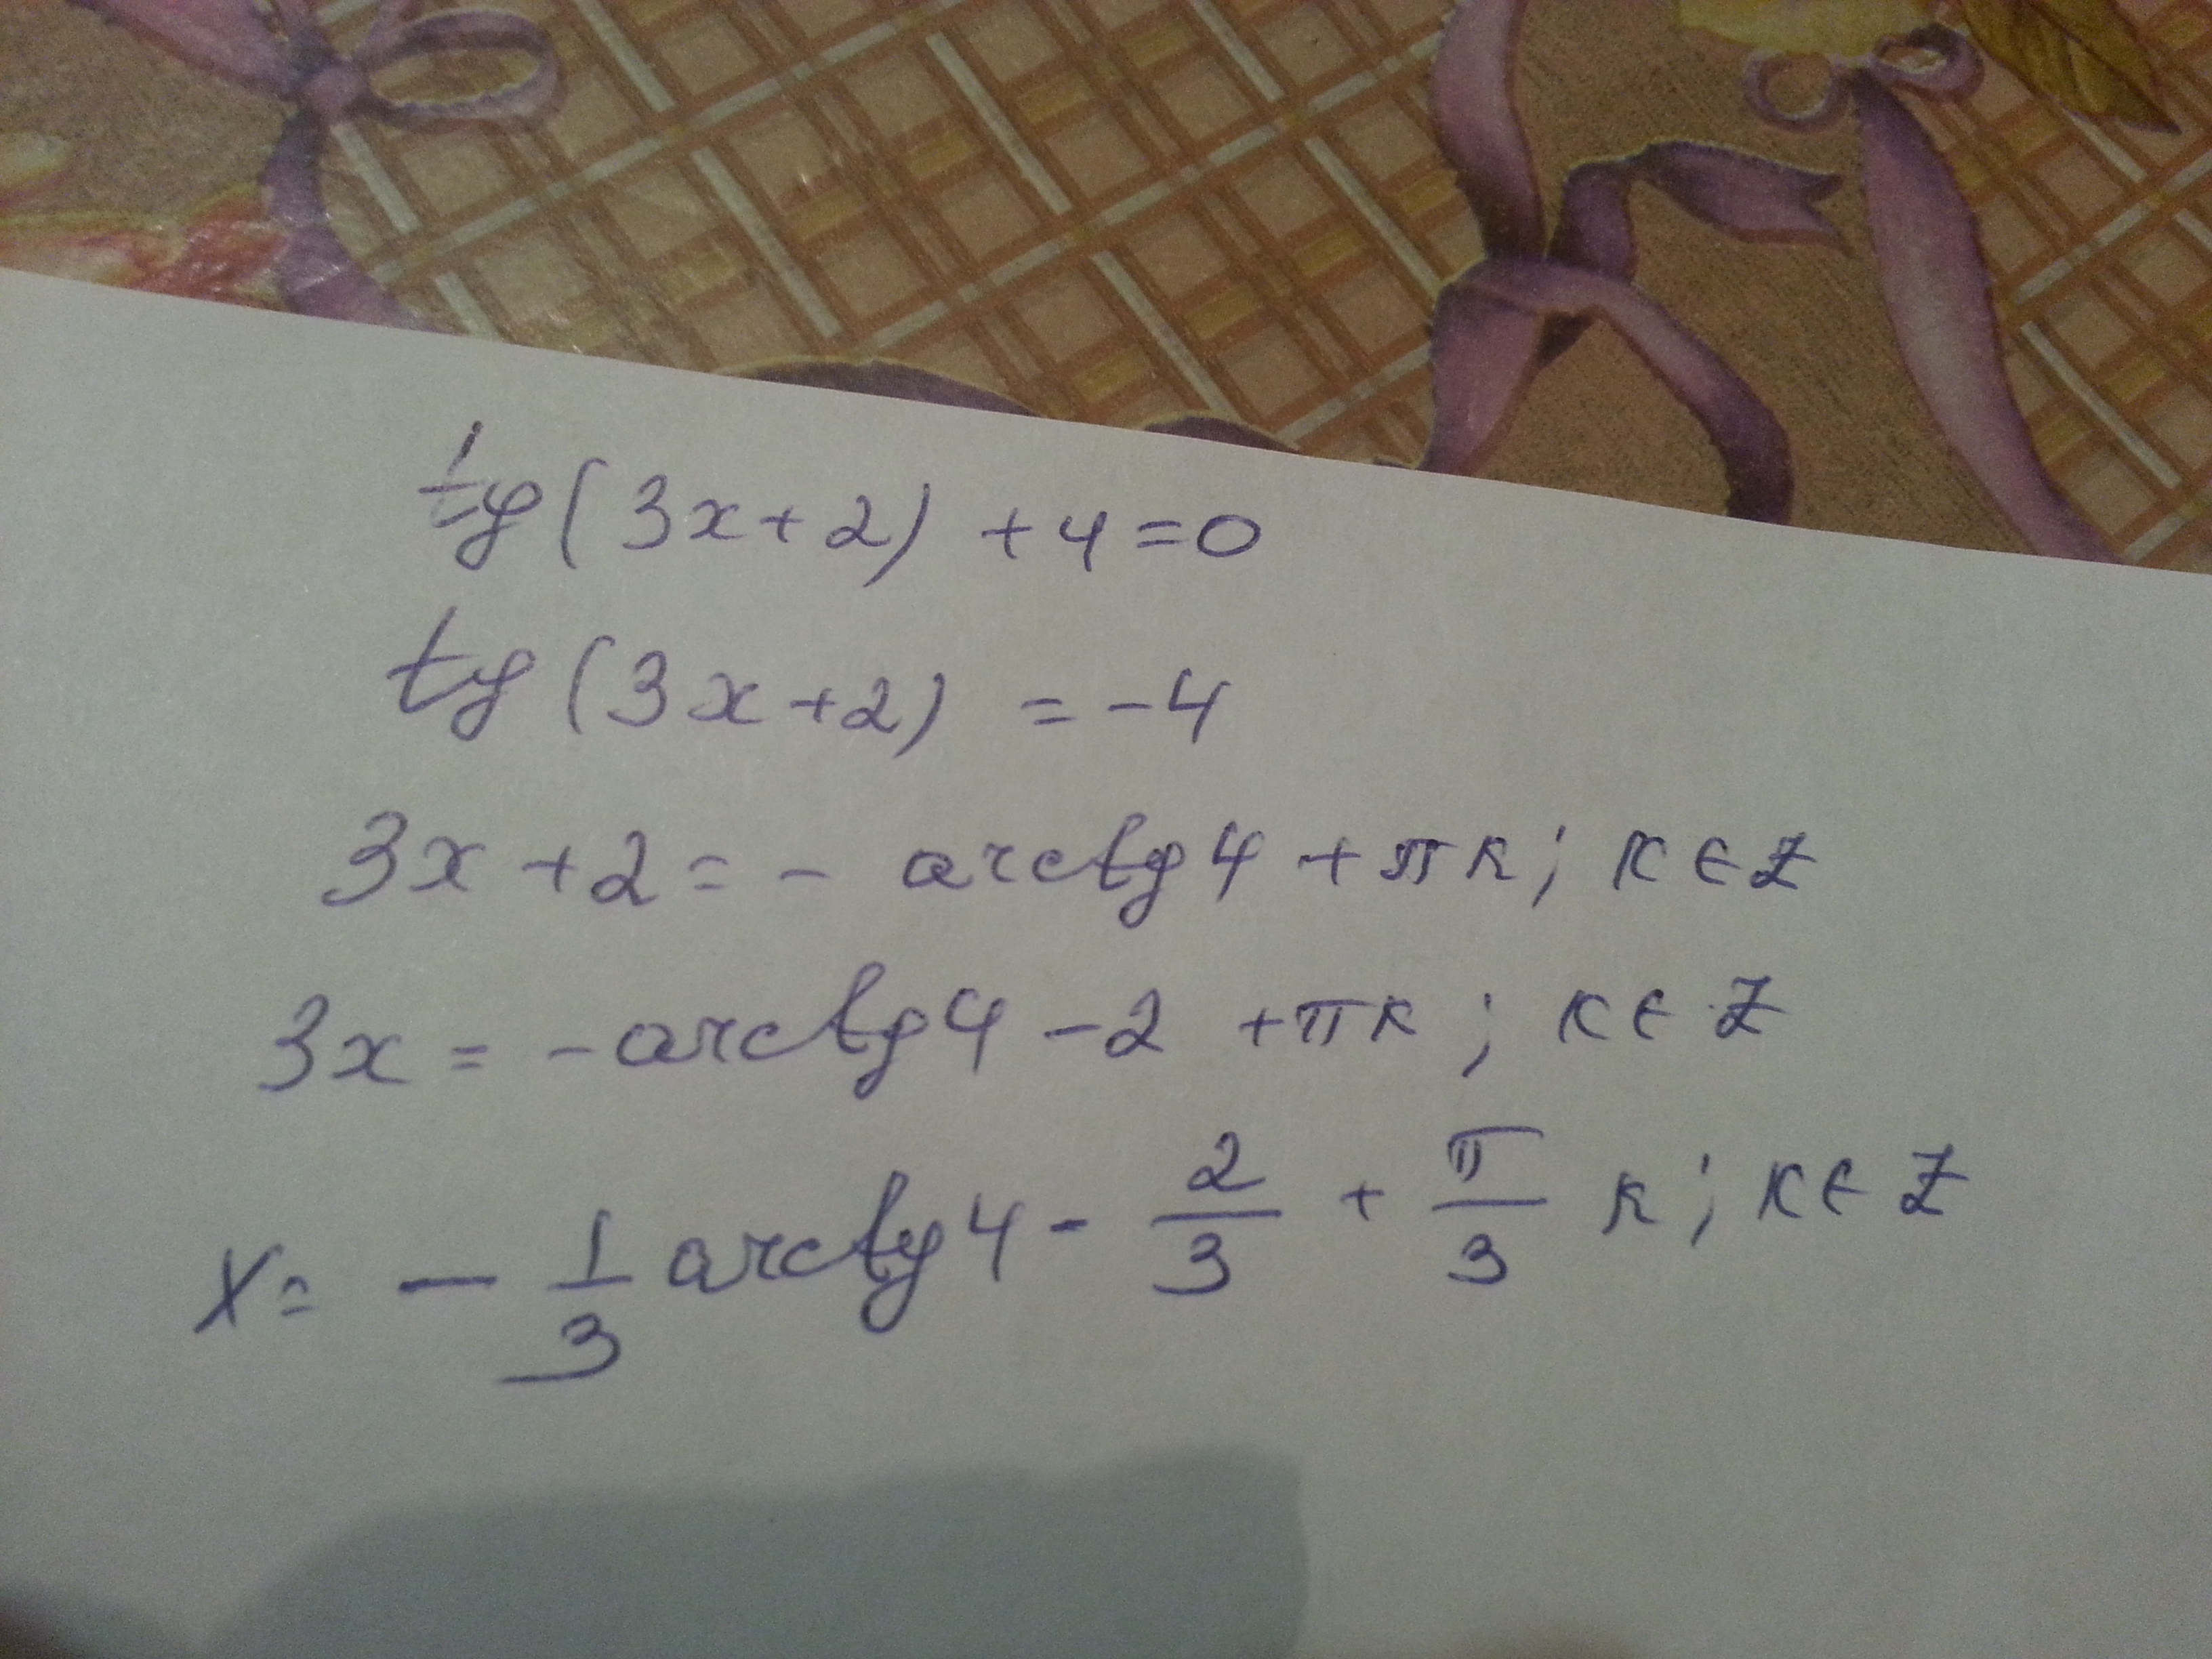 tg(3x+2) +4=0
tg(3x+2) = -4
3x+2= - arctg4 + πк; к∈Z
3x = -arctg4 -2 +πк; к∈Z
x= - 1/3 arctg4 - 2/3 + π/3 к; к∈Z